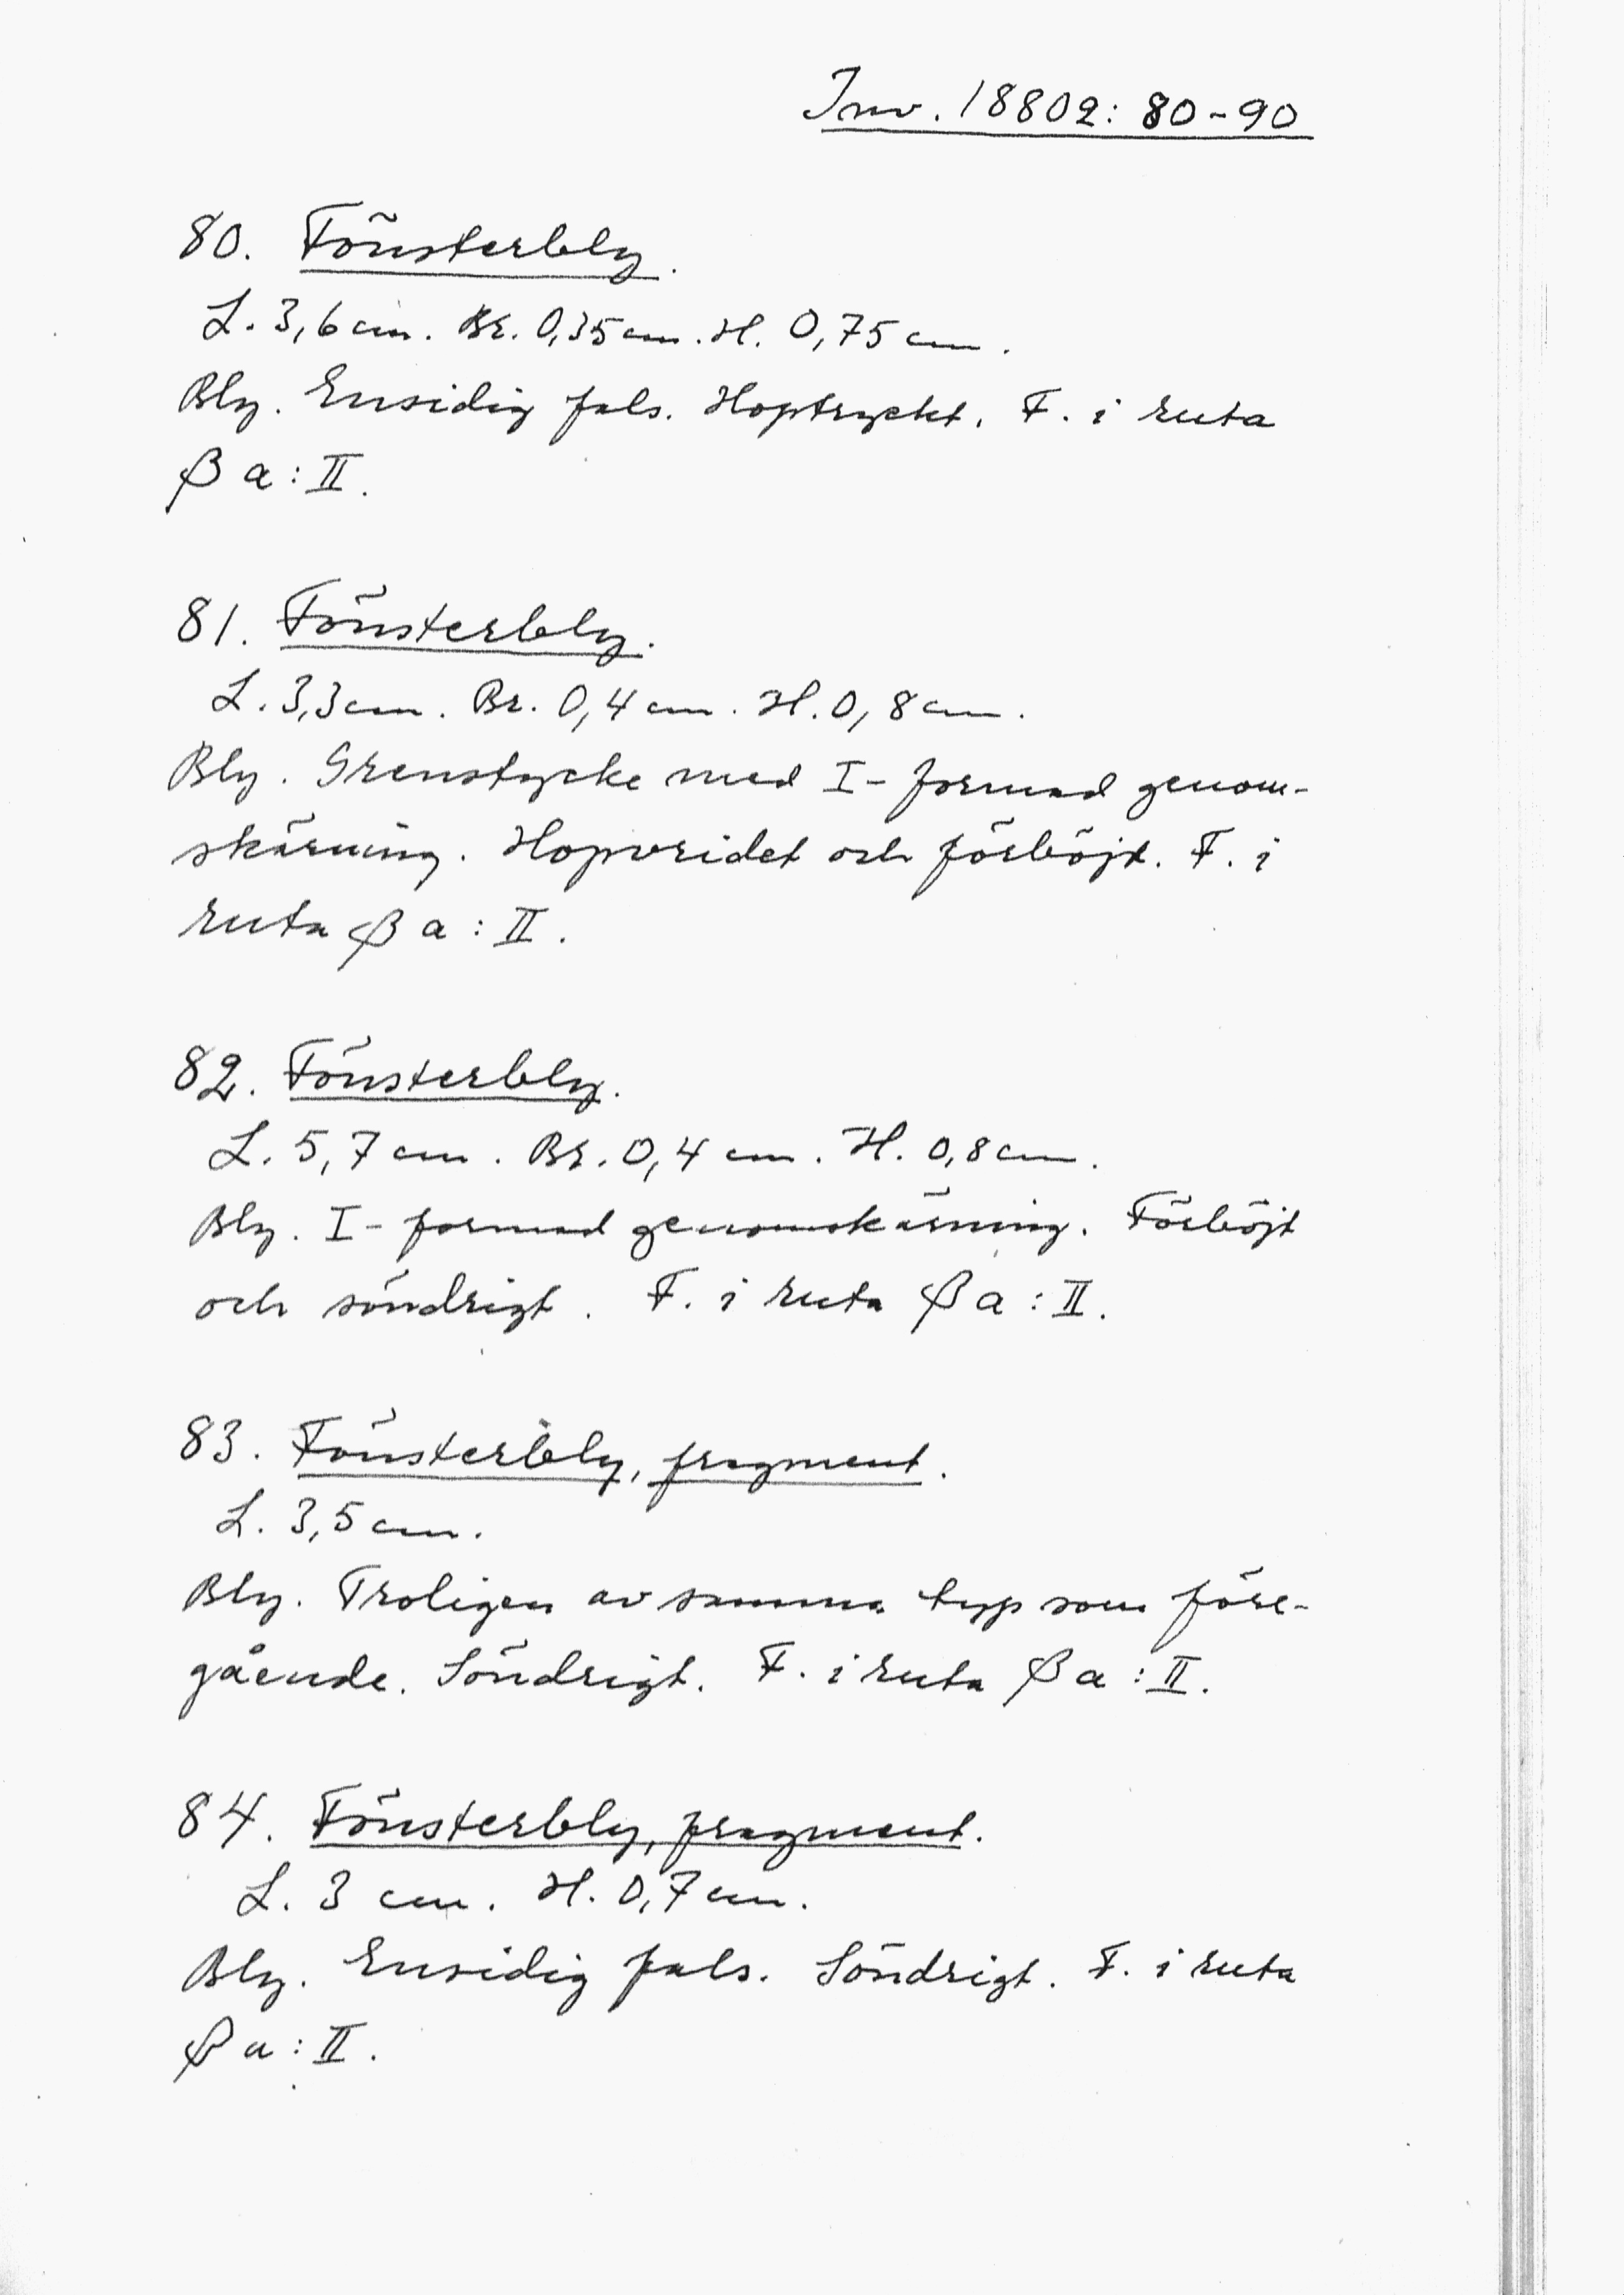 Inv. 18802: 80-90
80. Fönsterbly.
L. 3,6 cm. Br. 0,35 cm. H. 0,75 cm.
Bly. Ensidig fals. Hoptryckt. F. i ruta
β a : II.
81. Fönsterbly.
L. 3,3 cm. Br. 0,4 cm. H. 0,8 cm.
Bly. Grenstycke med I-formad genom-
skärning. Hopvridet och förböjt. F. i
ruta β a : II.
82. Fönsterbly.
L. 5,7 cm. Br. 0,4 cm. H. 0,8 cm.
Bly. I-formad genomskärning. Förböjt
och söndrigt. F. i ruta β a : II.
83. Fönsterbly, fragment.
L. 3,5 cm.
Bly. Troligen av samma typ som före-
gående. Söndrigt. F. i ruta β a : II.
84. Fönsterbly, fragment.
L. 3 cm. H. 0,7 cm.
Bly. Ensidig fals. Söndrigt. F. i ruta
β a : II.